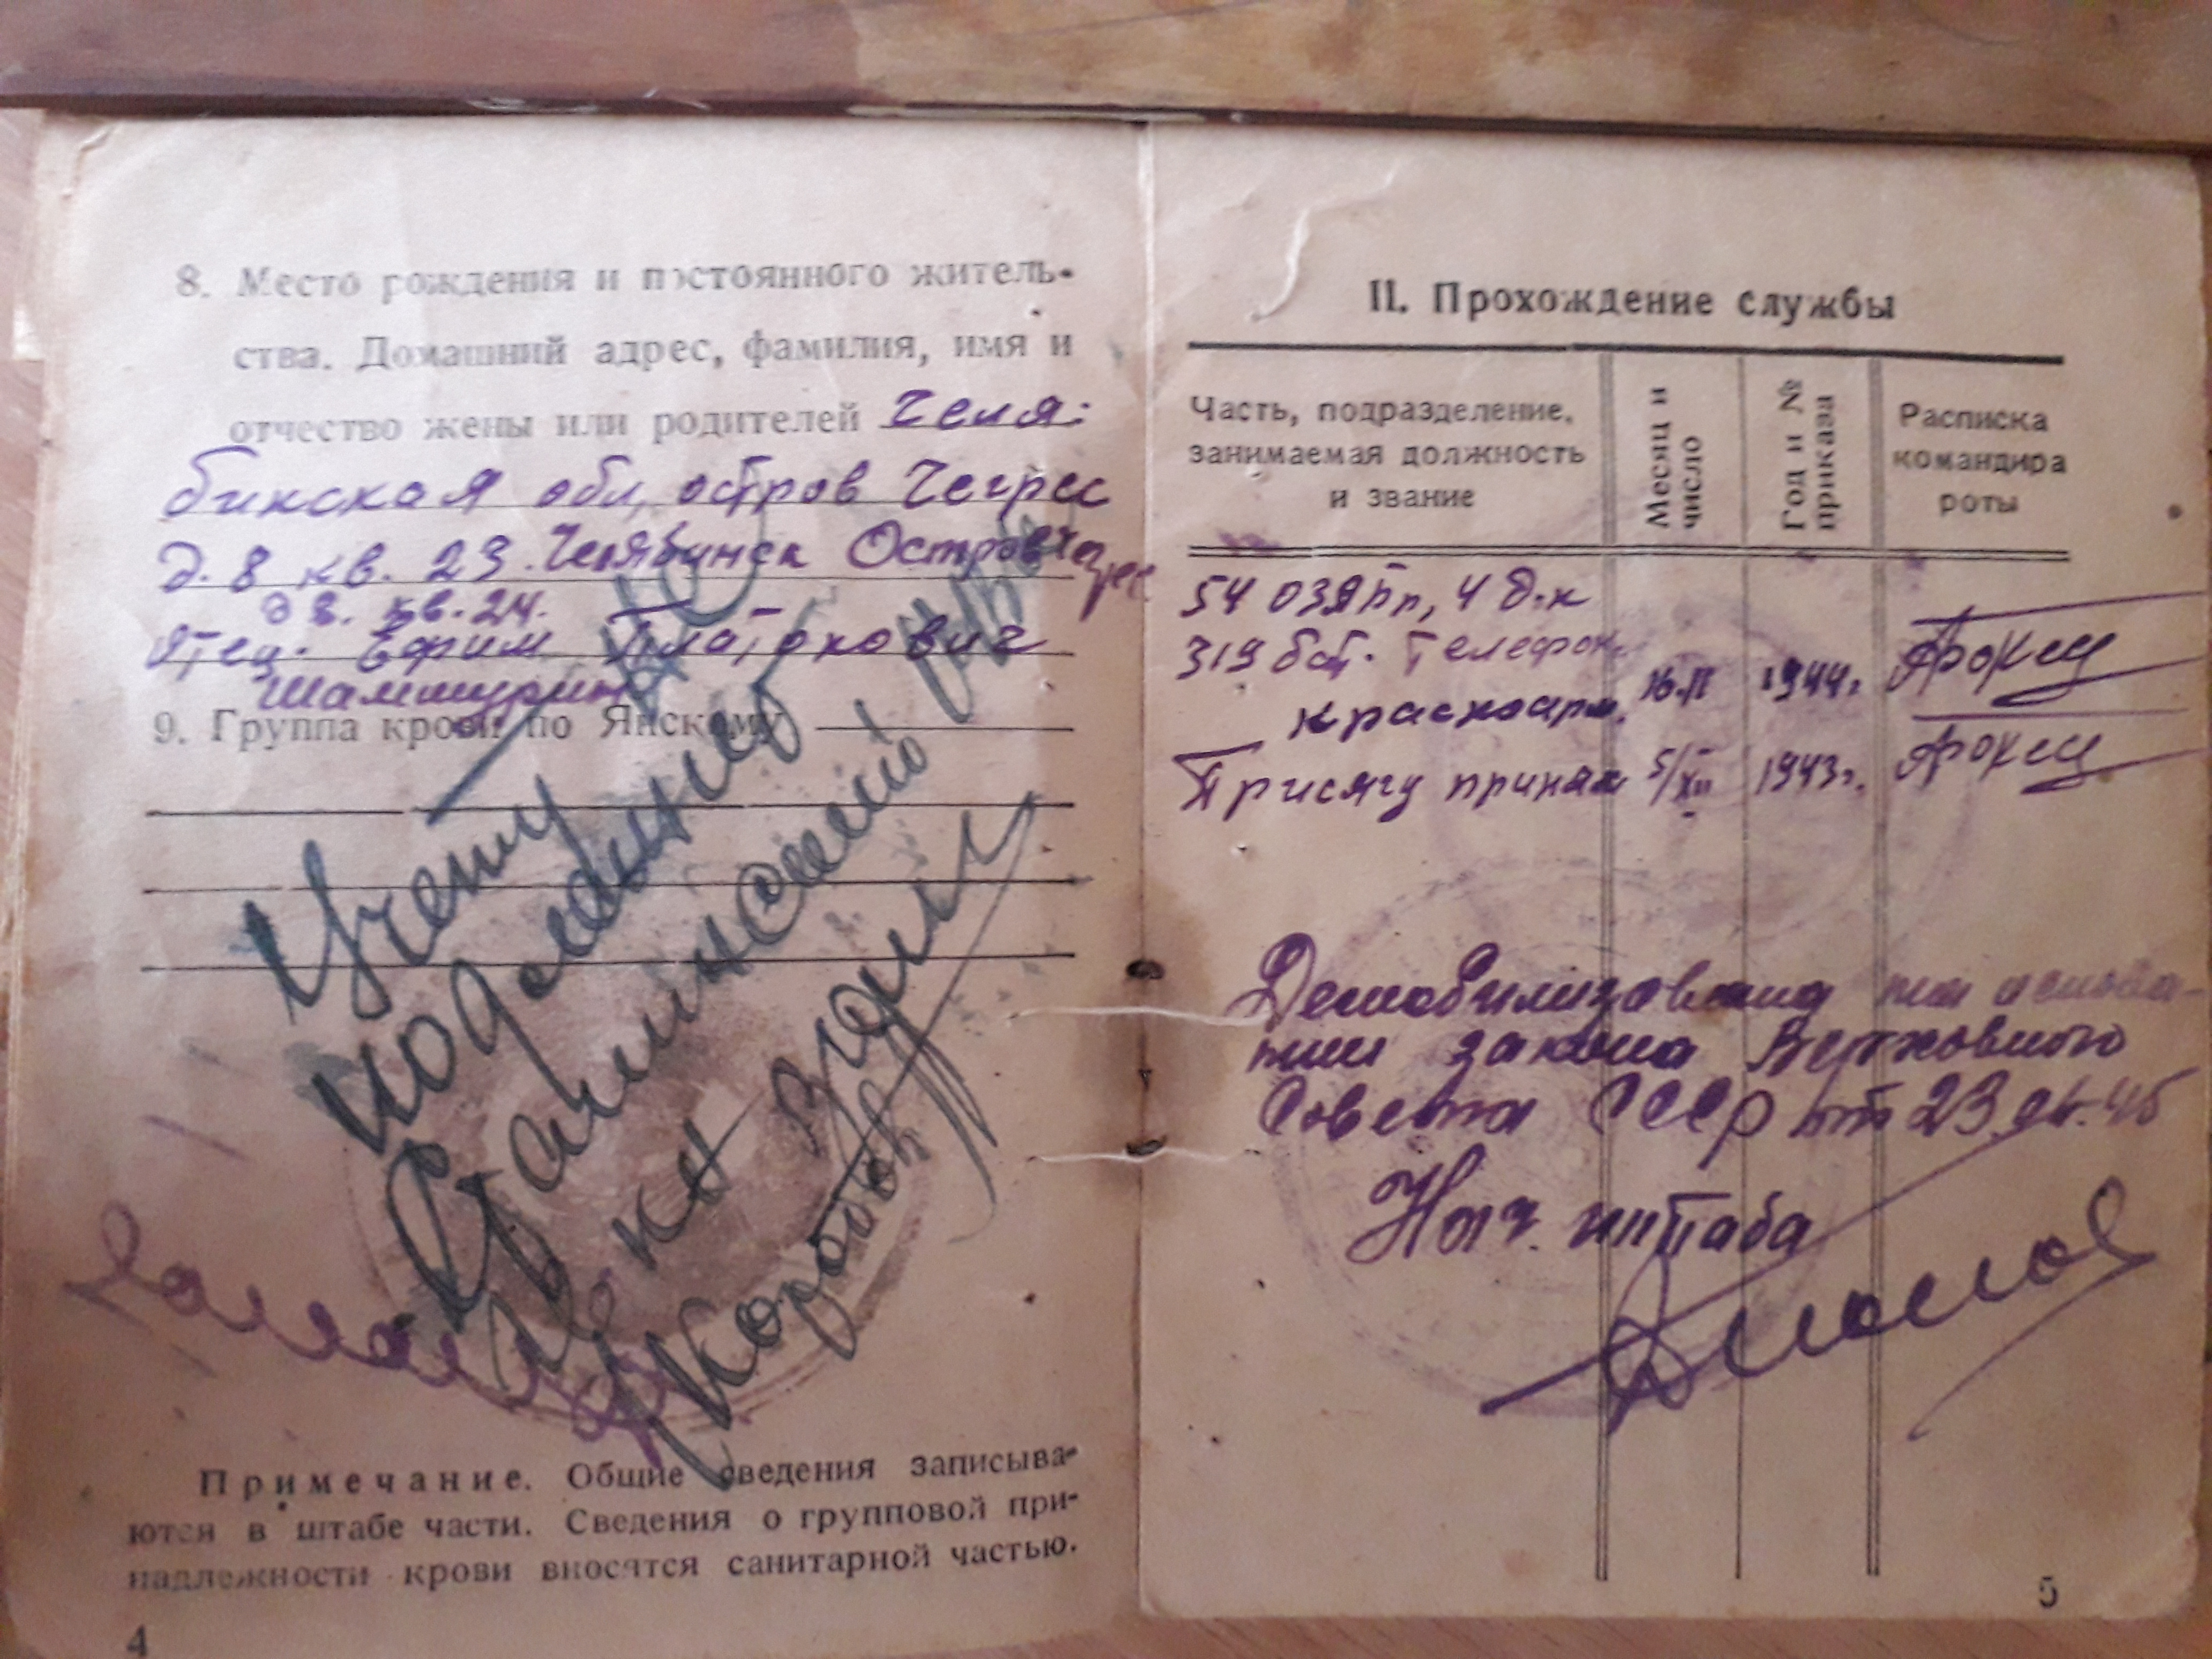 8. Место рождения и постоянного житель-
ства. Домашний адрес, фамилия, имя и
отчество жены или родителей Челя-
бинская обл, остров Чегрес
д. 8 кв. 23. Челябинск Остров Чегрес
д 8. кв. 24.
Отец. Ефим Платонович
Шаммурин
9. Группа крови по Янскому
Учету не
подлежит
Сталинский
Коротов
Примечание. Общие сведения записыва-
ются в штабе части. Сведения о групповой при-
надлежности крови вносятся санитарной частью.
4
II. Прохождение службы
Часть, подразделение, занимаемая должность и звание
Месяц и число
Год и № приказа
Расписка командира роты
54 ОЗЯпп, 4 д.к
319 бат. Телефон.
красноарм. 16.II 1944г.
Присягу принял 5/XII 1943г.
Демобилизована на основа-
нии закона Верховного
Совета СССР от 23
Нач. штаба
5